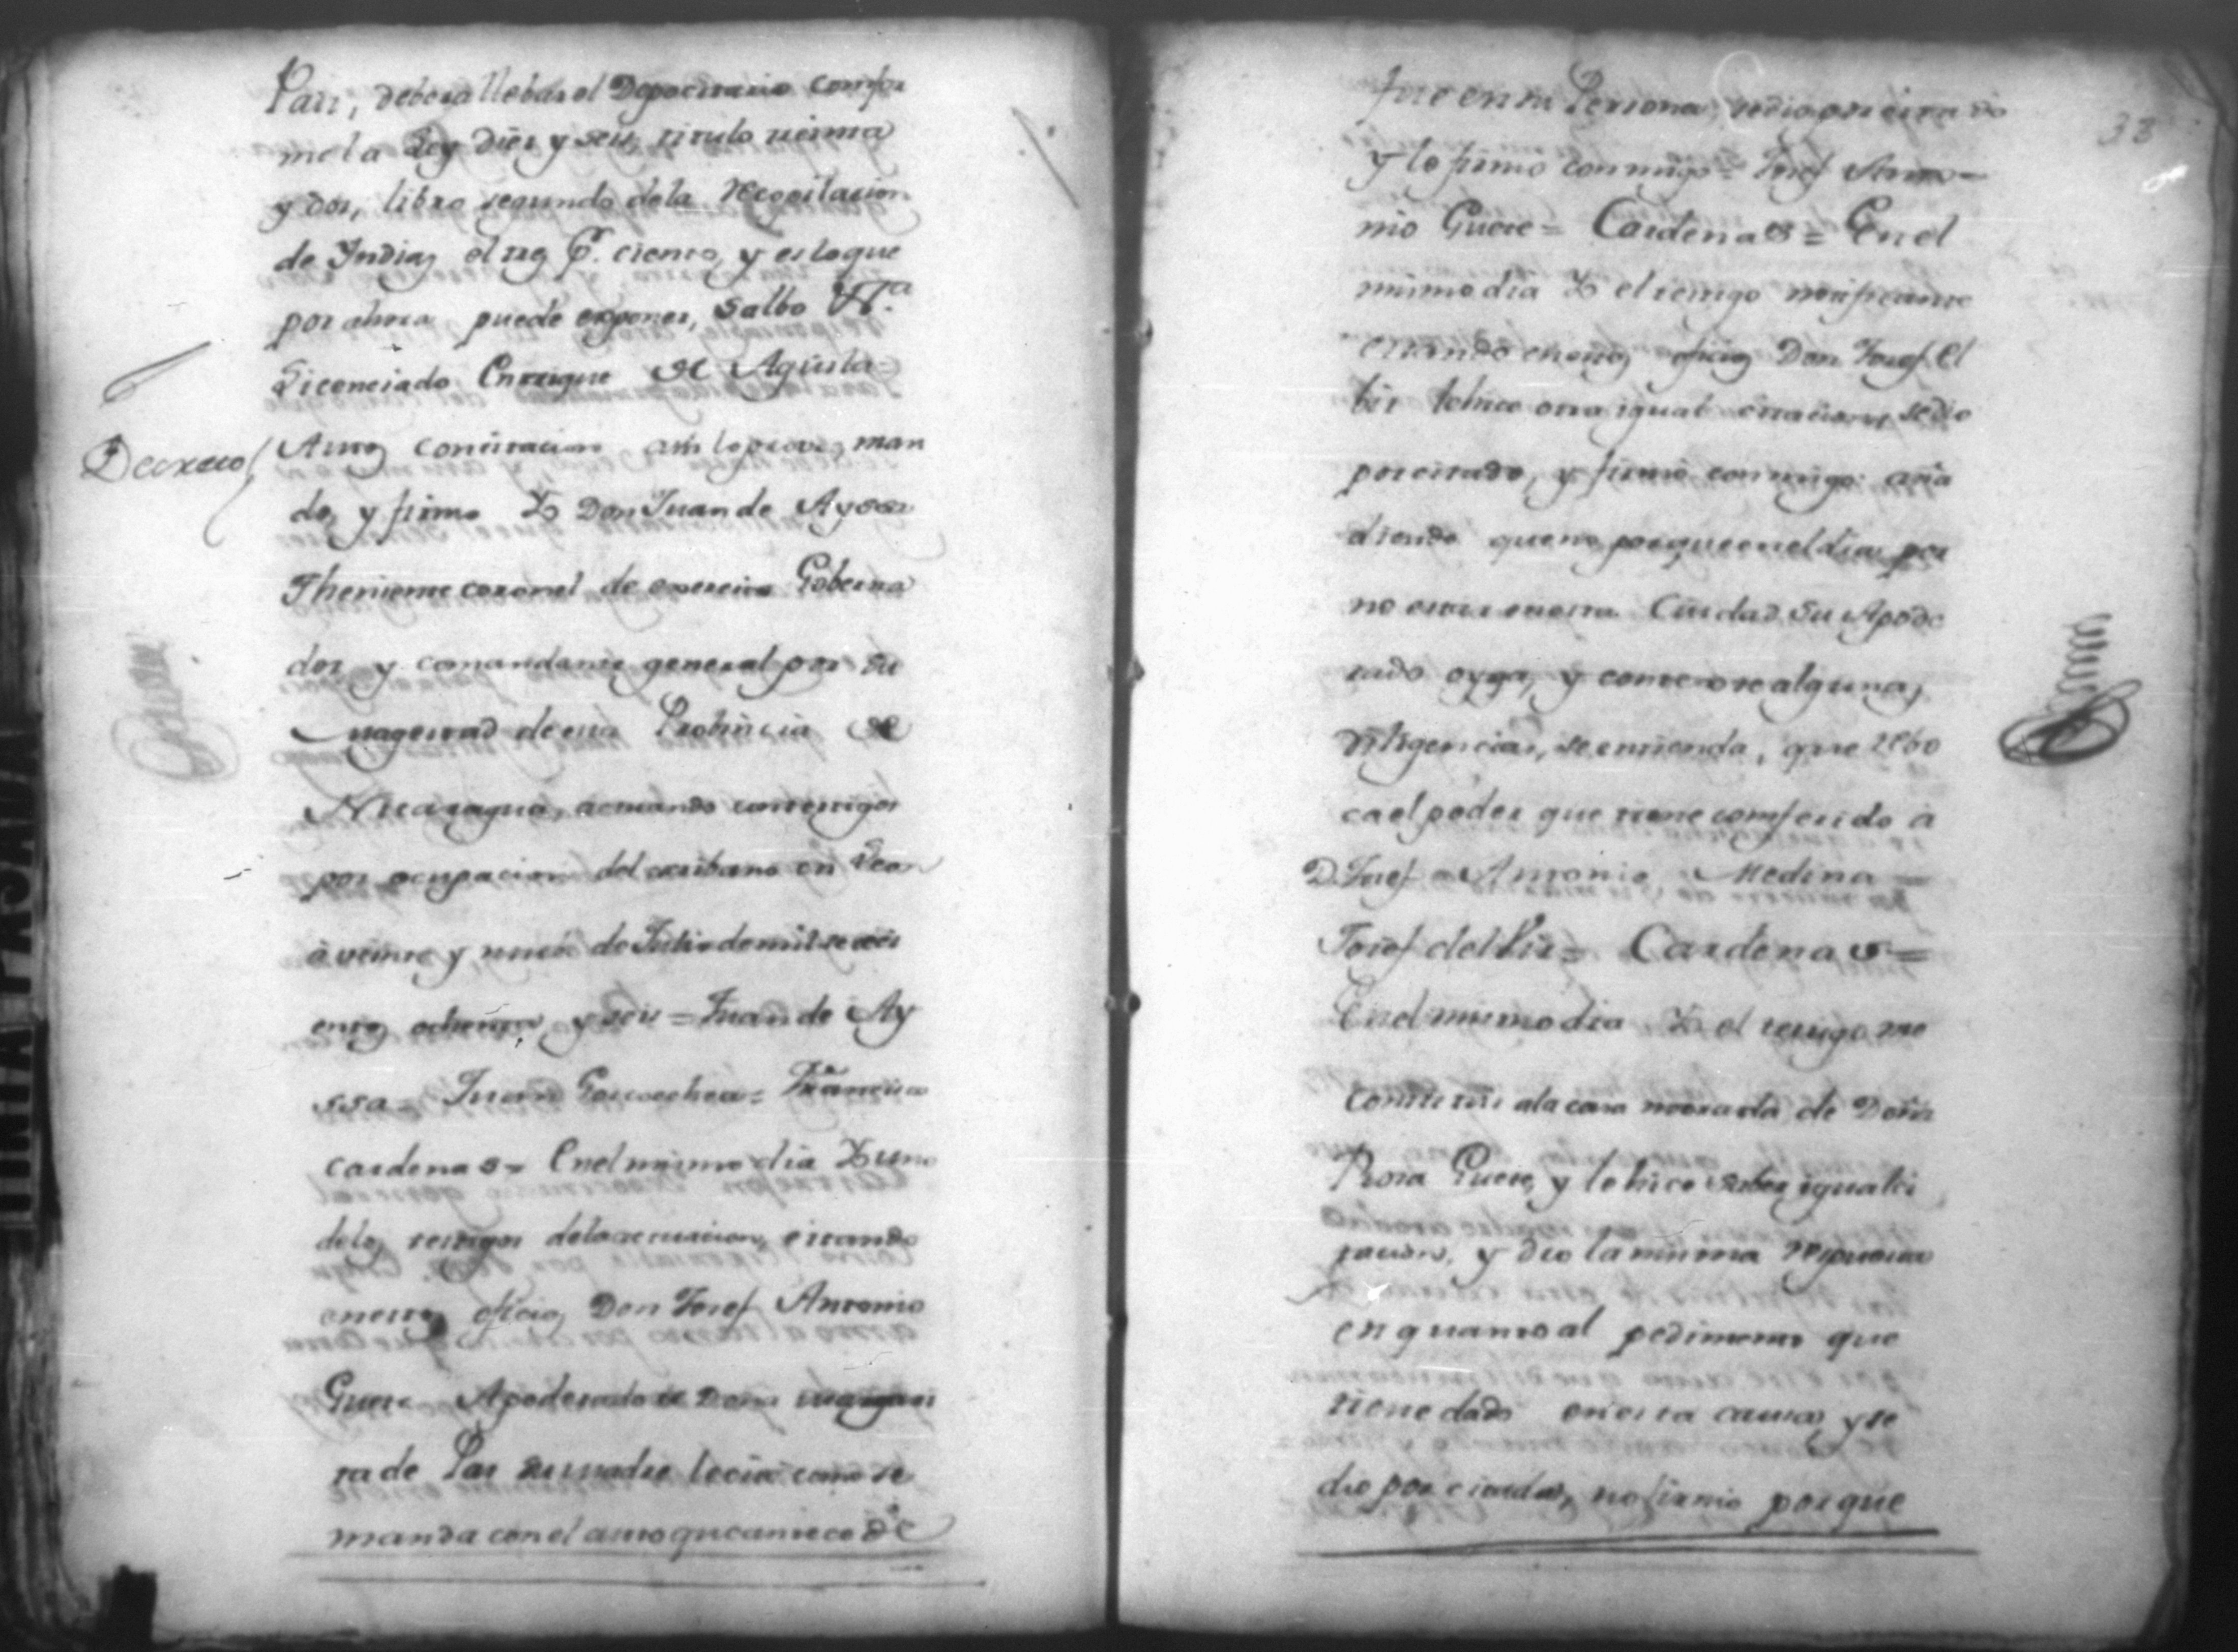 Pais, debera llebar el Depocitario confor
me la Ley dies y seis, titulo veinte
y dos, libro segundo dela Recopilacion
de Indias el tres P. ciento, y es lo que
por ahora puede exponer, Salbo Vtª
Licenciado Enrrique de Aguila =
Decreto
Autos con citacion assi lo proveo, man
do, y firmo Yo Don Juan de Ayssa
Theniente coronel de exercito Goberna
dor, y comandante general por su
Magestad de esta Probincia de
Nicaragua, actuando con testigos
por ocupacion del escribano en Leon
à veinte y nueve de Julio de mil setecie
entos ochenta, y seis = Juan de Ay
ssa = Juan Goicoechea = Francisco
Cardenas = En el mismo dia Yo uno
delos testigos dela actuacion, estando
en estos oficios Don Josef Antonio
Guere Apoderado de Doña Margari
ta de Paz su madre le cité como se
manda con el auto que antecede
38
fue en su Persona, se dio por citado
y lo firmo conmigo = Josef Anto=
nio Guere = Cardenas = En el
mismo dia Yo el testigo notificante
estando en estos oficios Don Josef el
bir le hice otra igual citacion, se dio
por citado, y firmó conmigo: aña
diendo que no porque en el dia por
no estar en esta Ciudad su Apode
rado oyga, y conteste algunas
diligencias, se entienda, que rebo
ca el poder que tiene comferido à
D. Josef Antonio Medina =
Josef del Vir = Cardenas =
En el mismo dia Yo el testigo me
constitui ala casa morada de Doña
Rosa Guere, y le hice saber igual ci
tacion, y dio la misma respuesta
en quanto al pedimento que
tiene dado en esta causa, y se
dio por citada, no firmó porque